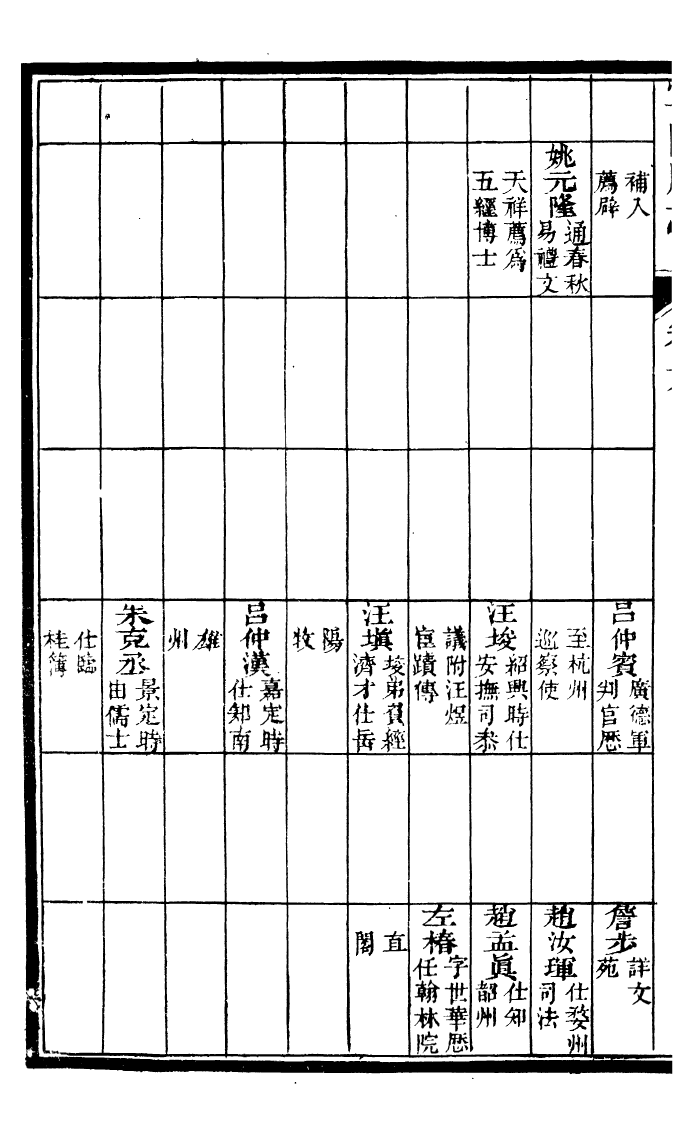 補入
薦辟
姚元隆通春秋
易禮文
天祥薦爲
五經博士
呂仲賓廣德軍
判官歷
至杭州
巡察使
汪埈紹興時仕
安撫司叅
議附汪煜
宦蹟傳
汪塡埈弟負經
濟才仕岳
陽
牧
呂仲漢嘉定時
仕知南
雄
州
朱克丞景定時
由儒士
仕臨
桂簿
詹步詳文
苑
趙汝琿仕婺州
司法
趙孟眞仕知
韶州
左椿字世華歷
任翰林院
直
閣